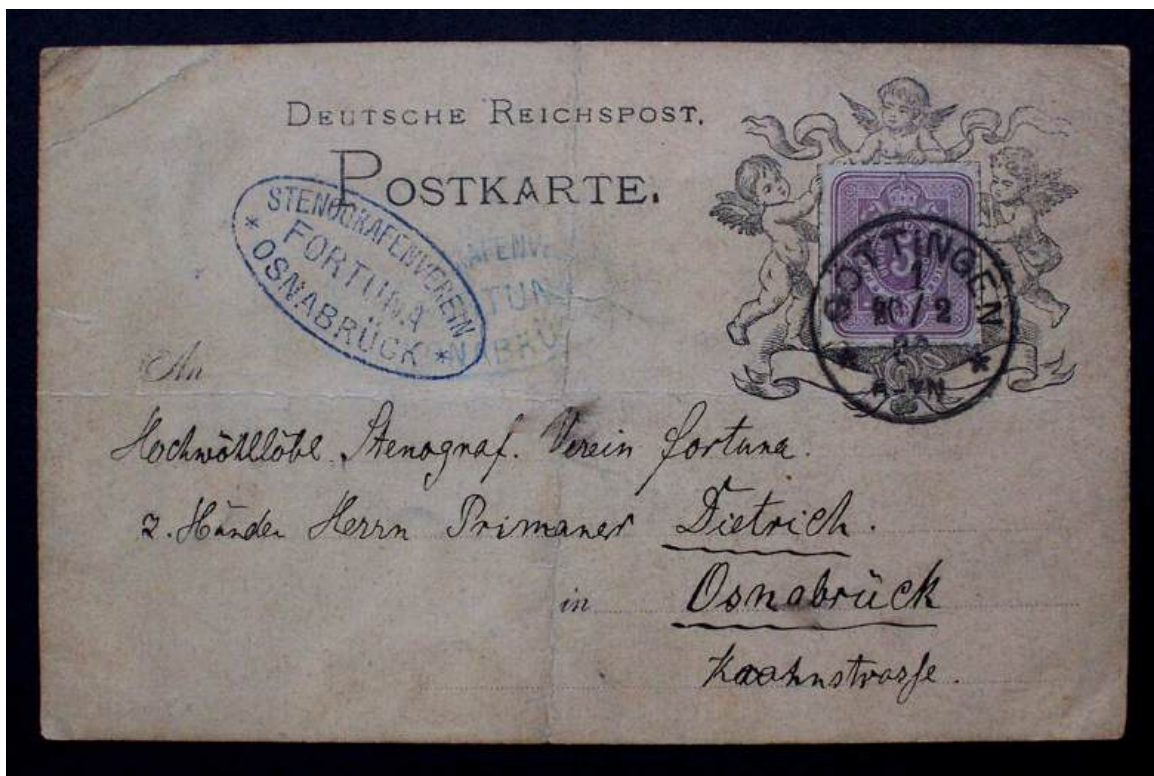 DEUTSCHE REICHSPOST.
POSTKARTE.
STENOGRAFENVEREIN
FORTUNA
* OSNABRÜCK *
AFENV
TUN
NABRÜ
5
GÖTTINGEN
1
20/2
* *
N
An
Hochwöhllöbl. Stenograf. Verein Fortuna.
z. Händen Herrn Primaner Dietrich.
in Osnabrück